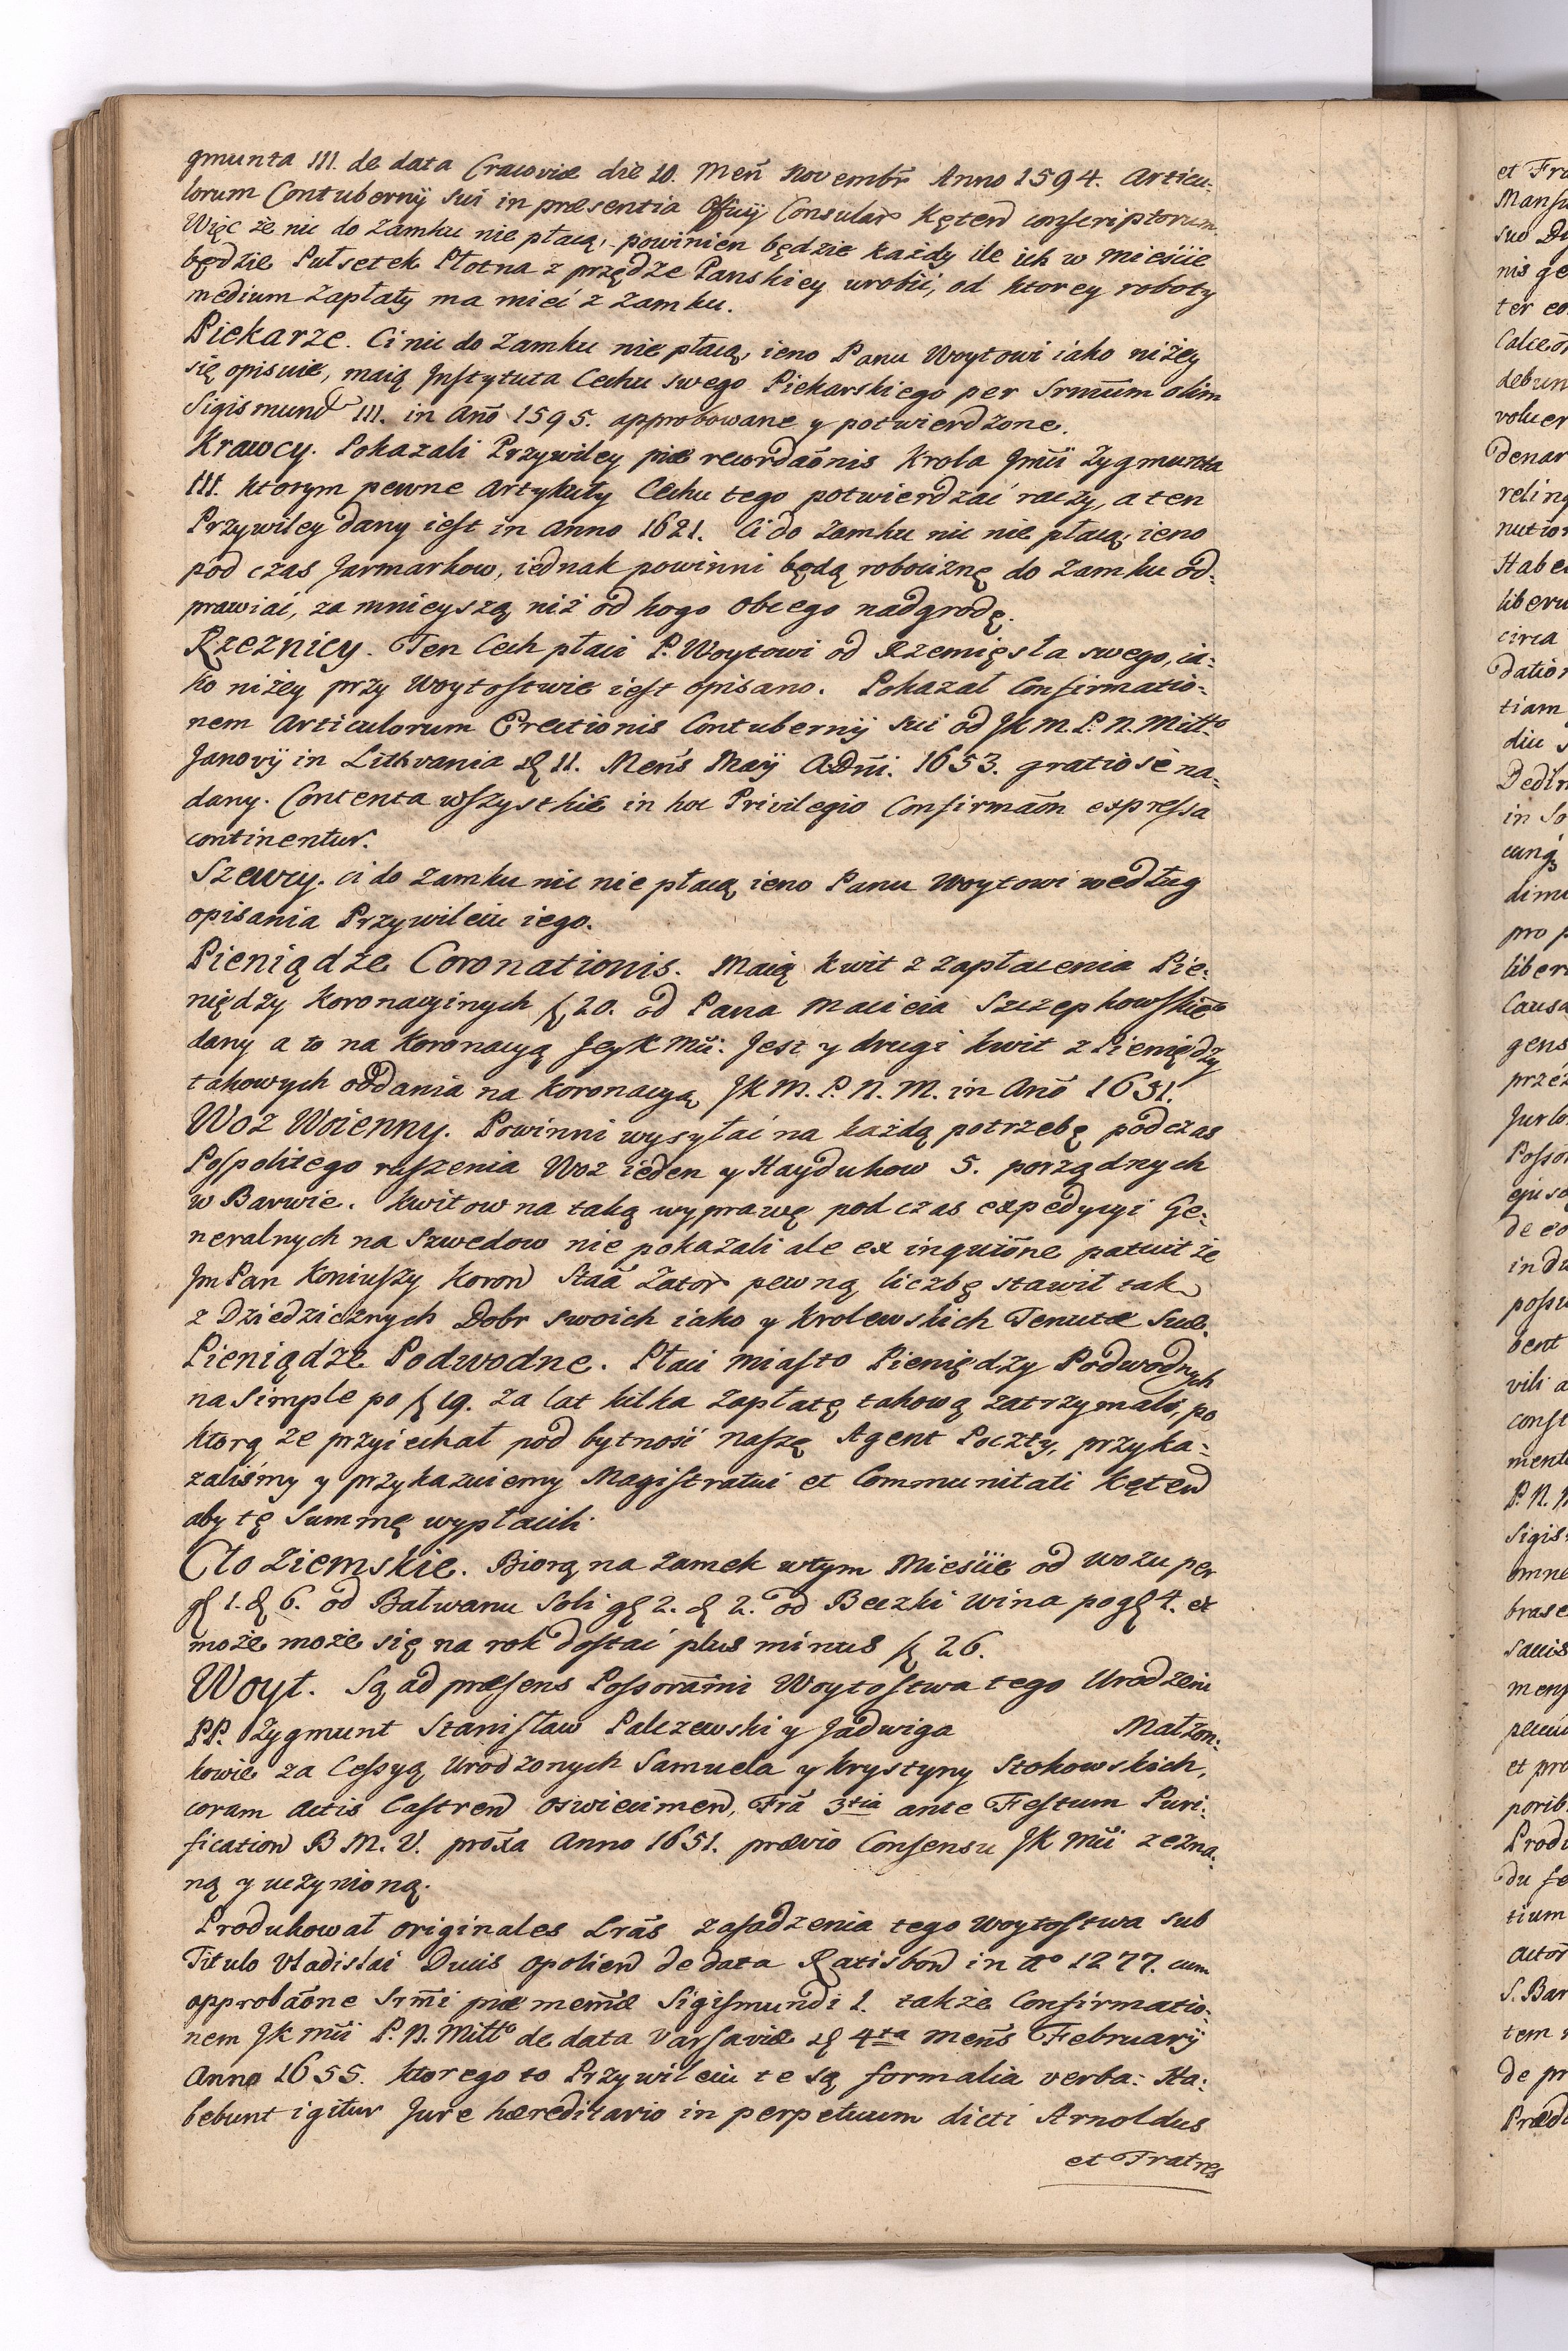 gmunta III. de data Cracoviæ die 10. Men̄ Novembr̄ Anno 1594. Articu-
lorum Contubernÿ sui in præsentia Officÿ Consular Kęten conscriptorum.
Więc że nic do Zamku nie płacą, powinien będzie każdy ile ich w mieście
będzie Pułsetek Płotna z przędze Panskiey urobić, od ktorey roboty
medium zapłaty ma mieć z zamku.
Piekarze. Ci nic do zamku nie płacą, ieno Panu Woytowi iako niżey
się opisuie, maią Instytuta Cechu swego Piekarskiego per Srm̄um olim
Sigismund III. in Anō 1595. approbowane y potwierdzone.
Krawcy. Pokazali Przywiley piæ recordaōnis Krola Jm̄ci Zygmunta
III. ktorym pewne Artykuły Cechu tego potwierdzać raczy, a ten
Przywiley dany iest in Anno 1621. Ci do zamku nic nie płacą, ieno
pod czas Jarmarkow, iednak powinni będą robociznę do zamku od-
prawiać, za mnieyszą niż od kogo obcego nadgrodę.
Rzeznicy. Ten Cech płaci P. Woytowi od Rzemięsła swego, ia-
ko niżey przy Woytostwie iest opisano. Pokazał Confirmatio-
nem Articulorum Erectionis Contubernÿ sui od JK M. P. N. Miłło
Janovÿ in Lithvania d 11. Men̄s Maÿ A.Dn̄i. 1653. gratiosè na-
dany. Contenta wszystkie in hoc Privilegio Confirmaōn expressa
continentur.
Szewcy. ci do zamku nic nie płacą ieno Panu Woytowi według
opisania Przywileiu iego.
Pieniądze Coronationis. Maią kwit z zapłacenia Pie-
niędzy Koronacyinych f 20. od Pana Macieia Szczepkowskieo
dany a to na Koronacyą Jey K Mci. Jest y drugi kwit z Pieniędzy
takowych oddania na Koronacyą JK M. P. N. M. in Anō 1651.
Woz Woienny. Powinni wysyłać na każdą potrzebę podczas
Pospolitego ruszenia Woz ieden y Haydukow 5. porządnych
w Barwie. Kwitow na taką wyprawę pod czas expedycyi Ge-
neralnych na Szwedow nie pokazali ale ex inquiōne patuit że
Jm Pan Koniuszy Koron Staā Zator pewną liczbę stawił tak
z Dziedzicznych Dobr swoich iako y Krolewskich Tenutæ suæ.
Pieniądze Podwodne. Płaci miasto Pieniędzy Podwodnych
na simple po f 19. za lat kilka zapłatę takową zatrzymali, po
ktorą że przyiechał pod bytność naszę Agent Poczty, przyka-
zaliśmy y przykazuiemy Magistratui et Communitati Kęten
aby tę Summę wypłacili.
Cło Ziemskie. Biorą na zamek w tym Mieście od wozu per
g 1. d 6. od Bałwanu soli g 2. d 2. od Beczki wina po g 4. et
może może się na rok dostać plus minus f 26.
Woyt. Są ad præsens Possorām̄i Woytostwa tego Urodzeni
PP. Zygmunt Stanisław Palczewski y Jadwiga Małżon-
kowie za Cessyą Urodzonych Samuela y Krystyny Stokowskich,
coram Actis Castren Oswiecimen, Frā 3tia ante Festum Puri-
fication B. M. V. prox̄a Anno 1651. prævio Consensu JK Mci zezna-
ną y uczynioną.
Produkował originales Lrās zasadzenia tego Woytostwa sub
Titulo Vladislai Ducis Opolien de data Ratisbon in Ao 1277. cum
approbaōne Srm̄i piæ mem̄æ Sigismundi I. także Confirmatio-
nem JK Mci P. N. Miłło de data Varsaviæ d 4ta men̄s Februarÿ
Anno 1655. ktorego to Przywileiu te są formalia verba: Ha-
bebunt igitur Jure hæreditario in perpetuum dicti Arnoldus
et Fratres